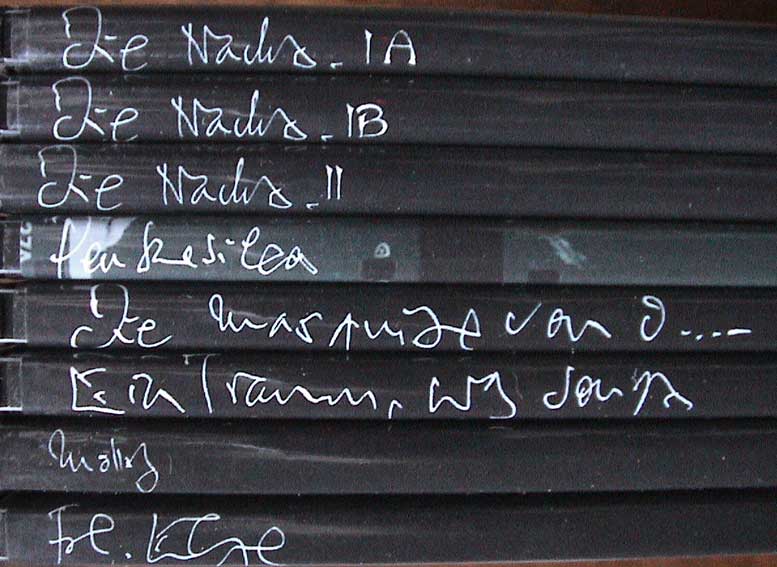 Die Nacht. IA
Die Nacht. IB
Die Nacht. II
Penthesilea
Die Marquise von O....
Ein Traum, was sonst
Fr. Else